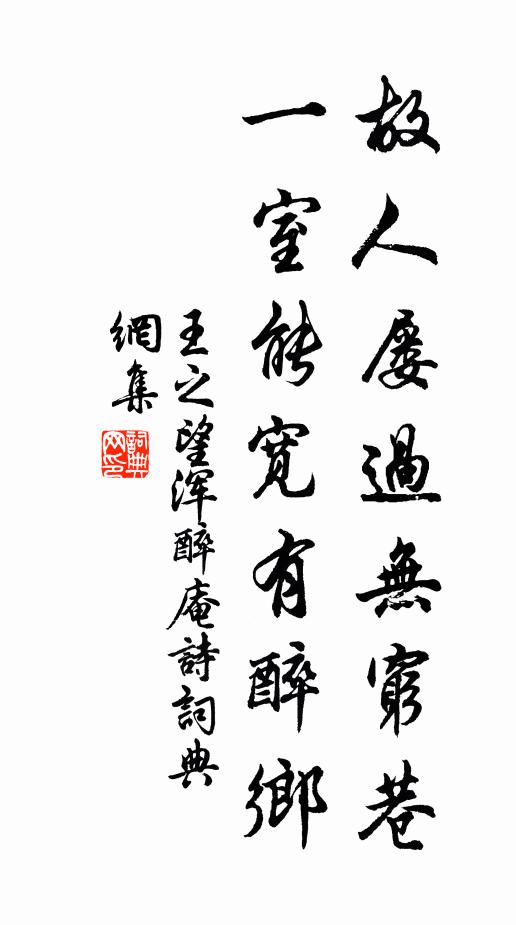 故人屡過無窮巷
一室能寬有醉鄉
王之望浑醉庵詩詞典
網集
詞典網印